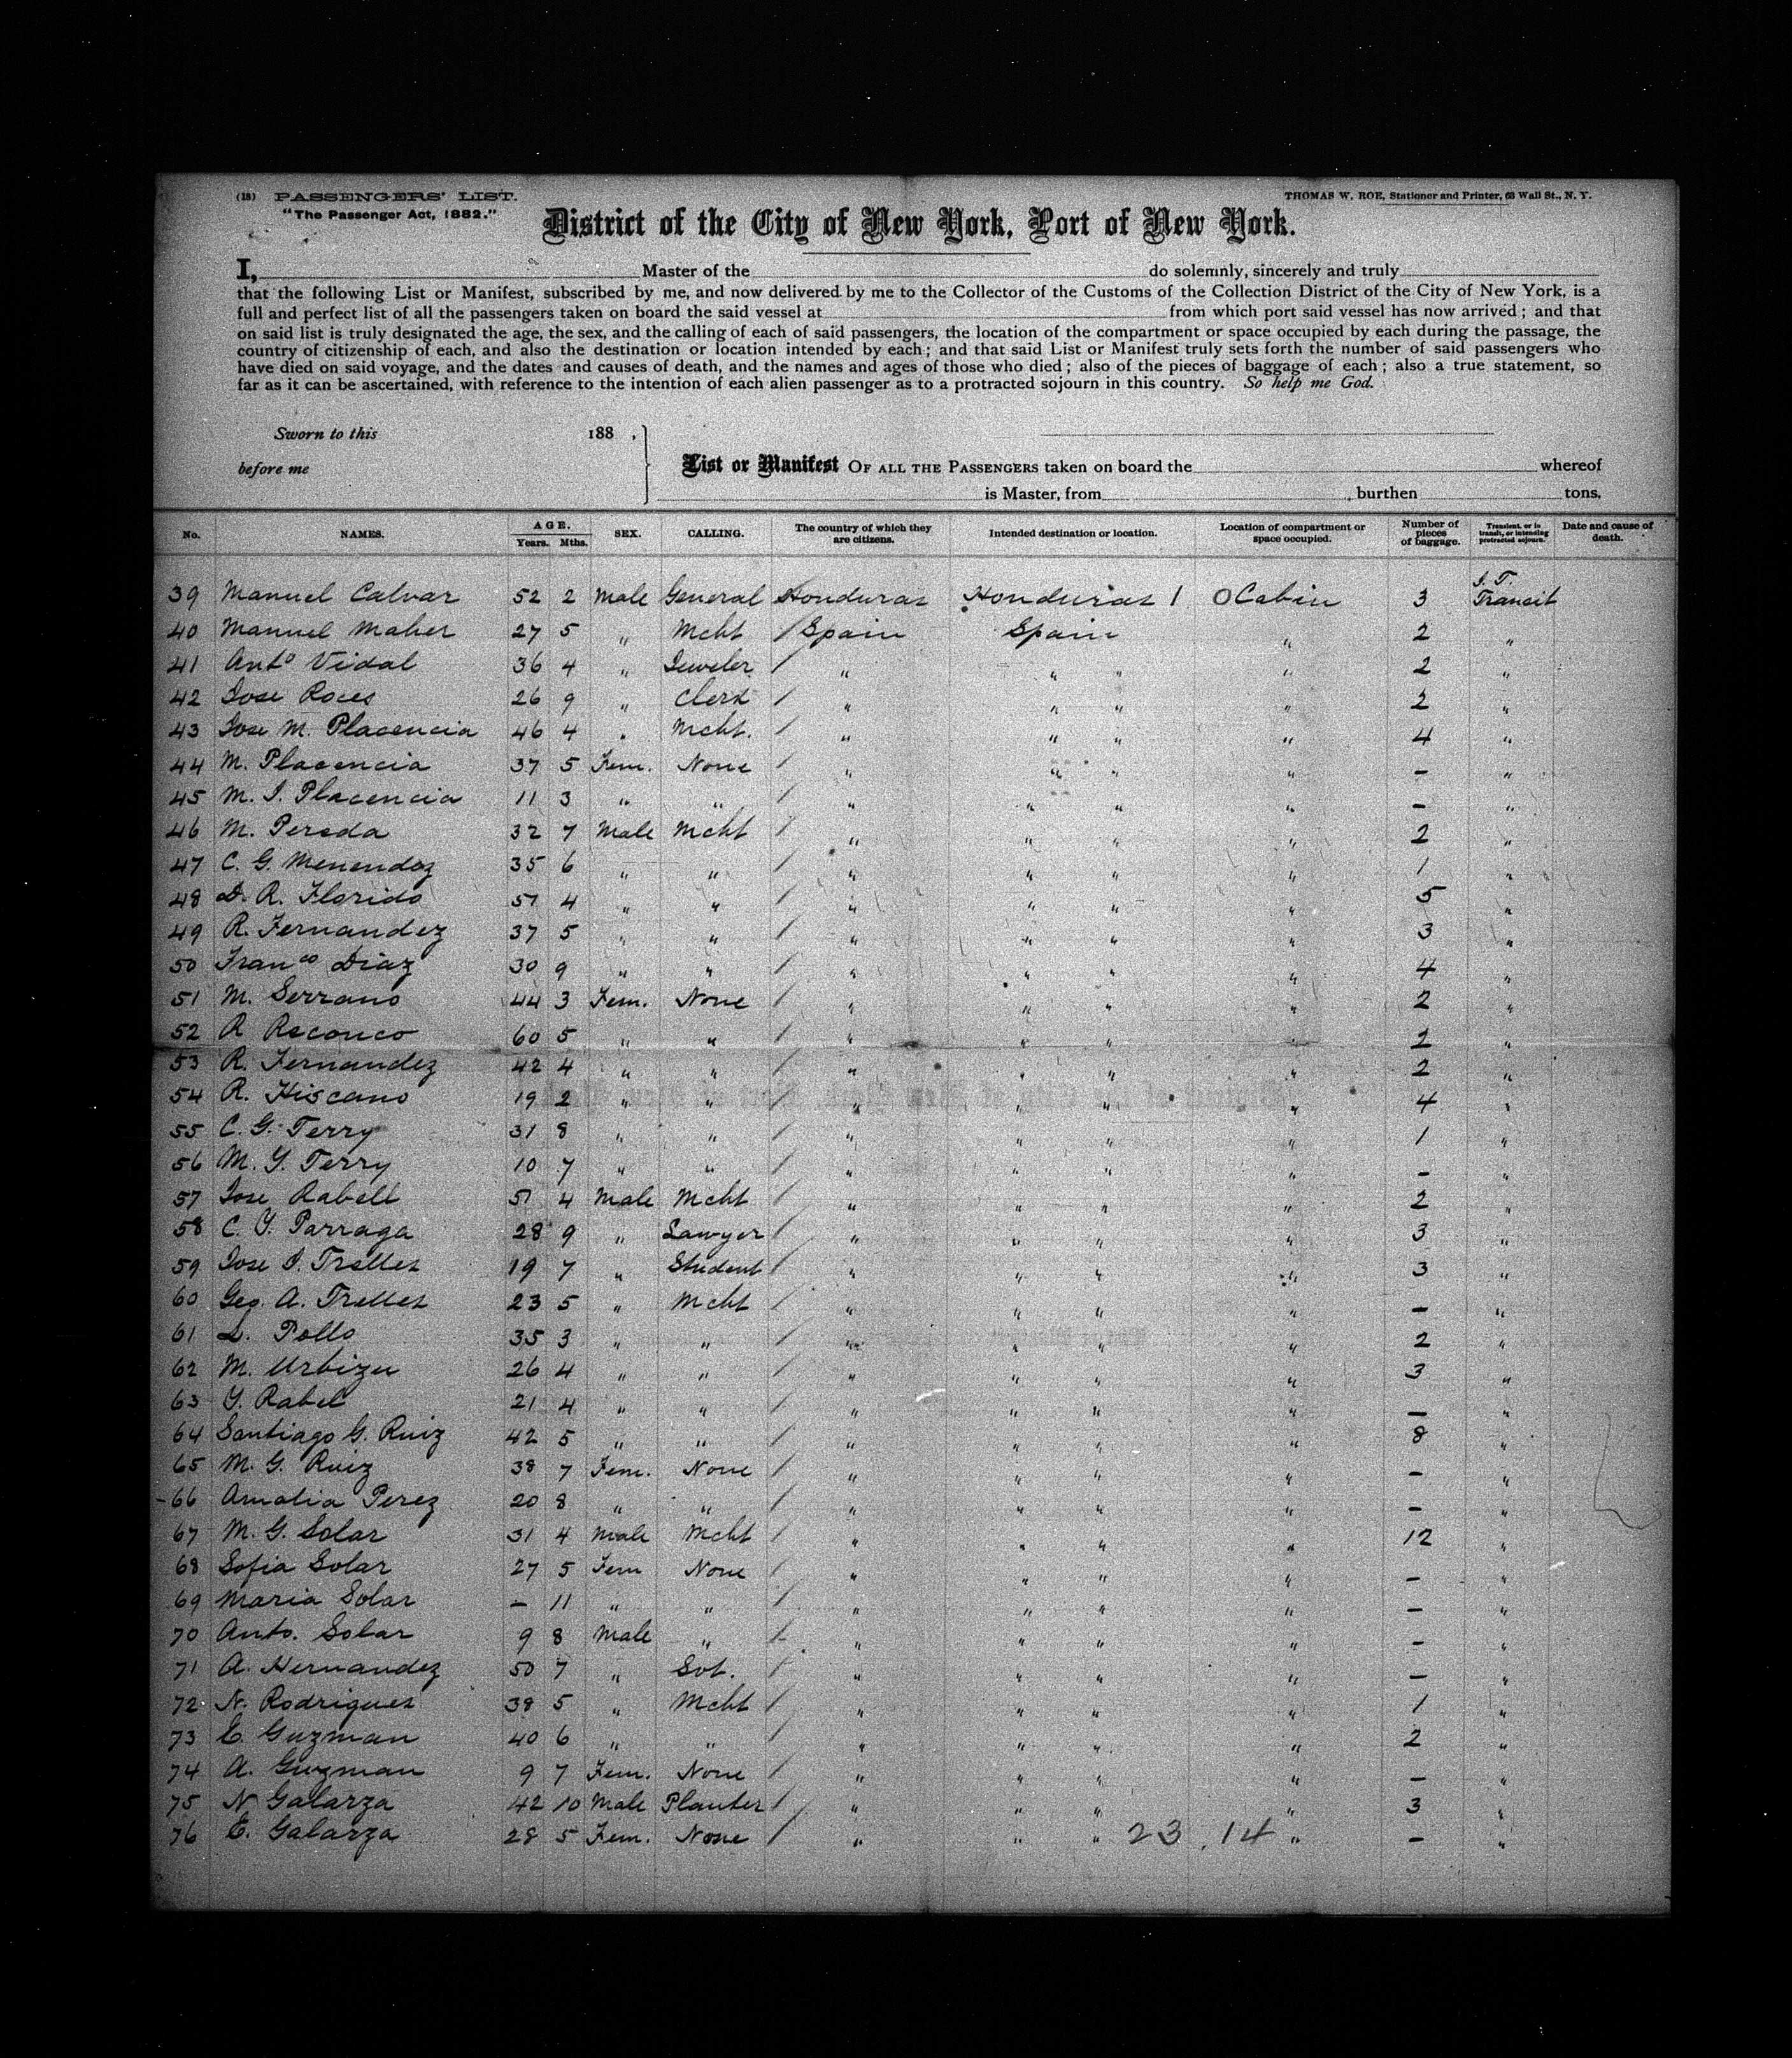 (18) PASSENGERS' LIST. THOMAS W. ROE, Stationer and Printer, 63 Wall St., N. Y.
"The Passenger Act, 1882."
District of the City of New York, Port of New York.
I, Master of the do solemnly, sincerely and truly
that the following List or Manifest, subscribed by me, and now delivered by me to the Collector of the Customs of the Collection District of the City of New York, is a
full and perfect list of all the passengers taken on board the said vessel at from which port said vessel has now arrived; and that
on said list is truly designated the age, the sex, and the calling of each of said passengers, the location of the compartment or space occupied by each during the passage, the
country of citizenship of each, and also the destination or location intended by each; and that said List or Manifest truly sets forth the number of said passengers who
have died on said voyage, and the dates and causes of death, and the names and ages of those who died; also of the pieces of baggage of each; also a true statement, so
far as it can be ascertained, with reference to the intention of each alien passenger as to a protracted sojourn in this country. So help me God.
Sworn to this 188 ,
before me
List or Manifest OF ALL THE PASSENGERS taken on board the whereof
is Master, from , burthen tons.
No. NAMES. AGE. Years. Mths. SEX. CALLING. The country of which they are citizens. Intended destination or location. Location of compartment or space occupied. Number of pieces of baggage. Transient, or in transit, or intending protracted sojourn. Date and cause of death.
39 Manuel Calvar 52 2 Male General Honduras Honduras 1 O Cabin 3 Transit
40 Manuel Maher 27 5 " Mcht / Spain Spain " 2 "
41 Anto Vidal 36 4 " Jeweler / " " " " 2 "
42 Jose Roces 26 9 " Clerk / " " " " 2 "
43 Jose M. Placencia 46 4 " Mcht. / " " " " 4 "
44 M. Placencia 37 5 Fem. None / " " " " – "
45 M. I. Placencia 11 3 " " / " " " " – "
46 M. Pereda 32 7 Male Mcht / " " " " 2 "
47 C. G. Menendez 35 6 " " / " " " " 1 "
48 D. R. Florido 57 4 " " / " " " " 5 "
49 R. Fernandez 37 5 " " / " " " " 3 "
50 Franco Diaz 30 9 " " / " " " " 4 "
51 M. Serrano 44 3 Fem. None / " " " " 2 "
52 R 60 5 " " / " " " " 2 "
53 R. Fernandez 42 4 " " / " " " " 2 "
54 R. Hiscano 19 2 " " / " " " " 4 "
55 C. G. Terry 31 8 " " / " " " " 1 "
56 M. Y. Terry 10 7 " " / " " " " – "
57 Jose Rabell 51 4 Male Mcht / " " " " 2 "
58 C. Y. Parraga 28 9 " Lawyer / " " " " 3 "
59 Jose I. Trelles 19 7 " Student / " " " " 3 "
60 Geo. A. Trelles 23 5 " Mcht / " " " " – "
61 L. Pollo 35 3 " " / " " " " 2 "
62 M. Urbizu 26 4 " " / " " " " 3 "
63 Y. Rabel 21 4 " " / " " " " – "
64 Santiago G. Ruiz 42 5 " " / " " " " 8 "
65 M. G. Ruiz 38 7 Fem. None / " " " " – "
66 Amalia Perez 20 8 " " / " " " " – "
67 M. G. Solar 31 4 Male Mcht / " " " " 12 "
68 Sofia Solar 27 5 Fem None / " " " " – "
69 Maria Solar – 11 " " / " " " " – "
70 Anto. Solar 9 8 Male " / " " " " – "
71 A. Hernandez 50 7 " Svt. / " " " " – "
72 N. Rodrigues 38 5 " Mcht / " " " " 1 "
73 E. Guzman 40 6 " " / " " " " 2 "
74 A. Guzman 9 7 Fem. None / " " " " – "
75 N Galarza 42 10 Male Planter / " " " " 3 "
76 E. Galarza 28 5 Fem. None / " " " 23 . 14 " – "